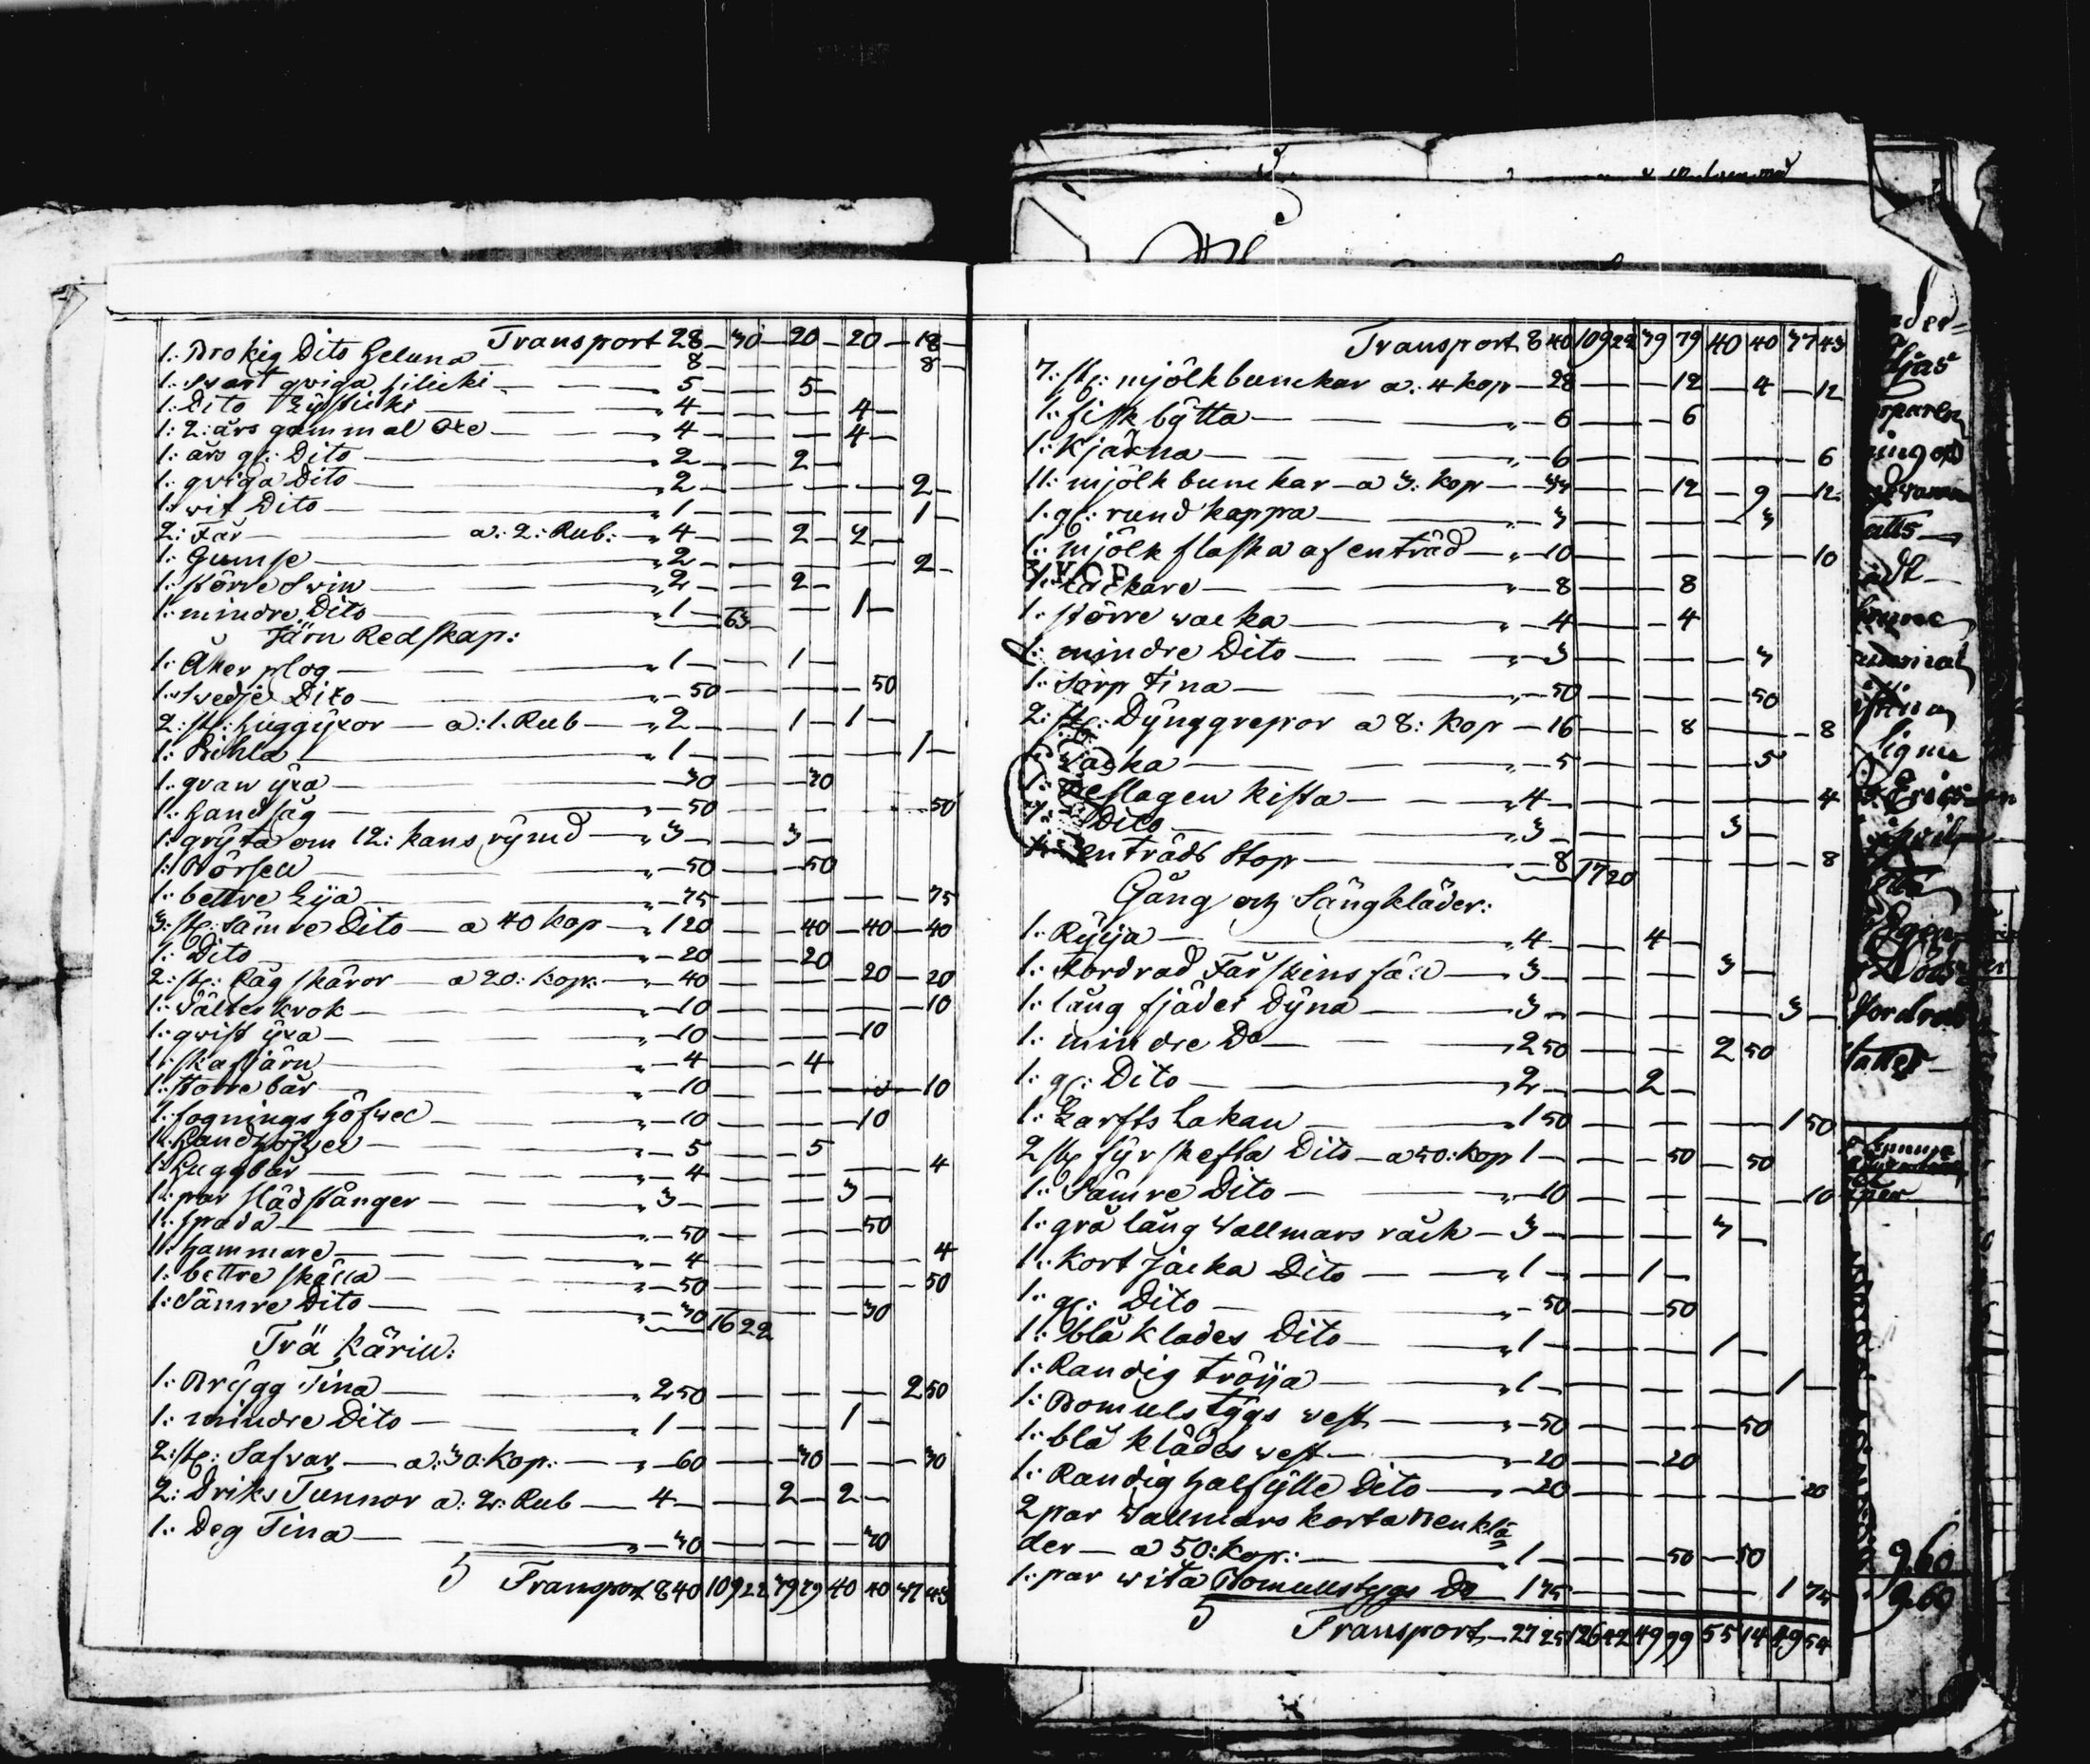 Transport 28 — 30 — 20 — 20 — 18 —
1: Brokig Dito Heluna — 8 — 8 —
1: Svart qviga hilicki — 5 — 5 —
1: Dito — 4 — 4 —
1: 2: års gammal Oxe — 4 — 4 —
1: års gl: Dito — 2 — 2 —
1: qviga Dito — 2 — 2 —
1: wit Dito — 1 — 1 —
2: Får — a: 2: Rub: — 4 — 2 — 2 —
1: Gumse — 2 — 2 —
1: större Swin — 2 — 2 —
1: mindre Dito — 1 — 63 — 1 —
Järn Redskap:
1: Åker plog — 1 — 1 —
1: Swedje Dito — 50 — 50
2: st: huggyxor — a: 1. Rub — 2 — 1 — 1 —
1: Bihla — 1 — 1 —
1: gran yxa — 30 — 30
1: handsåg — 50 — 50
1: gryta om 12: kans rymd — 3 — 3 —
1: Börsell — 50 — 50
1: bettre Lija — 75 — 75
3: st: Sämre Dito — a 40 kop — 120 — 40 — 40 — 40
1: Dito — 20 — 20
2: st: Råg skäror — a 20: kop: — 40 — 20 — 20
1: krok — 10 — 10
1: qwist yxa — 10 — 10
1: skafjärn — 4 — 4
1: större bår — 10 — 10
1: fognings höfwel — 10 — 10
1: Handhöfwel — 5 — 5
1: Huggbår — 4 — 4
1: par städstånger — 3 — 3 —
1: spada — 50 — 50
1: hammare — 4 — 4
1: bettre skälla — 50 — 50
1: Sämre Dito — 30 16 22 — 30
Trä Kärill:
1: Brygg Tina — 2 50 — 2 50
1: mindre Dito — 1 — 1 —
2: st: Safvar — a: 30: Kop: — 60 — 30 — 30
2: Driks Tunnor a: 2: Rub — 4 — 2 — 2 —
1: Deg Tina — 30 — 30
5 Transport 8 40 109 22 39 79 40 40 37 43
Transport 8 40 109 22 39 79 40 40 37 43
7: st: mjölkbunckar a: 4 kop — 28 — 12 — 4 — 12
1: fisk bytta — 6 — 6
1: Kjärna — 6 — 6
11: mjölk bunckar — a 3: kop — 33 — 12 — 9 — 12
1: gl: rund kappa — 3 — 3
1: mjölk flaska af enträd — 10 — 10
1: — 8 — 8
1: större wacka — 4 — 4
1: mindre Dito — 3 — 3
1: Sörp Tina — 50 — 50
2: st: Dynggrepor a 8: kop — 16 — 8 — 8
1: Wacka — 5 — 5
1: Beslagen kista — 4 — 4
Dito — 3 — 3 —
enträds Stop — 8 17 20 — 8
Gång och Sängkläder:
1: Ryija — 4 — 4 —
1: fordrad Fårskinsfäll — 3 — 3 —
1: lång fjäder Dyna — 3 — 3 —
1: mindre Do — 2 50 — 2 50
1: gl: Dito — 2 — 2 —
1: Lakan — 1 50 — 1 50
2 st: fyrskefta Dito — a 50: kop 1 — 50 — 50
1: Sämre Dito — 10 — 10
1: grå lång Wallmars råck — 3 — 3 —
1: Kort jacka Dito — 1 — 1 —
1: gl: Dito — 50 — 50
1: blå klädes Dito — 1 — 1 —
1: Randig tröija — 1 — 1 —
1: Bomulstygs west — 50 — 50
1: blå klädes west — 20 — 20
1: Randig halfylle Dito — 20 — 20
2 par Wallmars korta Benklä=
der — a 50: kop: — 1 — 50 — 50
1: par wita Bomullstygs Do 1 75 — 1 75
5 Transport 27 25 126 42 49 99 55 14 49 54
9.60
9.60